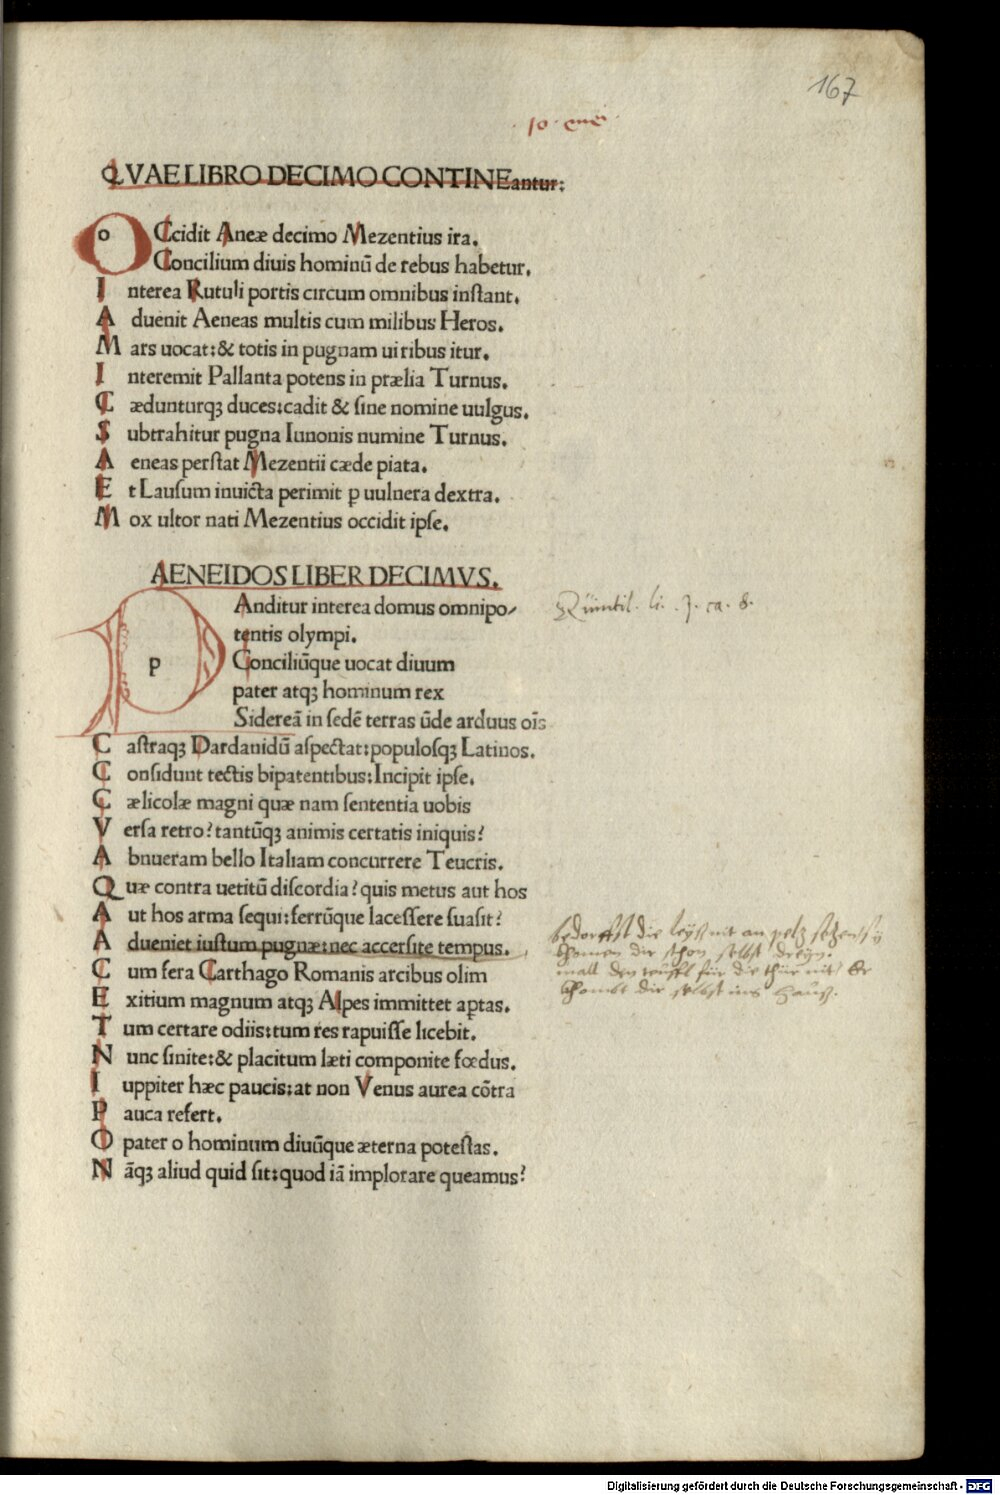 167
10 enei
QVAE LIBRO DECIMO CONTINEantur:
OCcidit Aneæ decimo Mezentius ira.
Concilium diuis hominū de rebus habetur.
Interea Rutuli portis circum omnibus inſtant.
Aduenit Aeneas multis cum milibus Heros.
Mars uocat:& totis in pugnam uiribus itur.
Interemit Pallanta potens in prælia Turnus.
Cædunturqꝫ duces:cadit & ſine nomine uulgus.
Subtrahitur pugna Iunonis numine Turnus.
Aeneas perſtat Mezentii cæde piata.
Et Lauſum inuicta perimit ꝑ uulnera dextra.
Mox ultor nati Mezentius occidit ipſe.
AENEIDOS LIBER DECIMVS.
PAnditur interea domus omnipo-
tentis olympi.
Conciliūque uocat diuum
pater atqꝫ hominum rex
Sidereā in ſedē terras ūde arduus oīs
Caſtraqꝫ Dardanidū aſpectat:populoſqꝫ Latinos.
Conſidunt tectis bipatentibus:Incipit ipſe.
Cælicolæ magni quæ nam ſententia uobis
Verſa retro? tantūqꝫ animis certatis iniquis?
Abnueram bello Italiam concurrere Teucris.
Quæ contra uetitū diſcordia? quis metus aut hos
Aut hos arma ſequi:ferrūque laceſſere ſuaſit?
Adueniet iuſtum pugnæ:nec accerſite tempus.
Cum fera Carthago Romanis arcibus olim
Exitium magnum atqꝫ Alpes immittet aꝑtas.
Tum certare odiis:tum res rapuiſſe licebit.
Nunc ſinite:& placitum læti componite fœdus.
Iuppiter hæc paucis:at non Venus aurea cōtra
Pauca refert.
O pater o hominum diuūque æterna poteſtas.
Nāqꝫ aliud quid ſit:quod iā implorare queamus?
Quintil. li. . ca. 8.
bedorffst die leyß nit an peltz setzen sy
khomen dir schon selbst dreyn.
mall den teuffl für die thür nit/ Er
khombt dir selbst ins Hauß.
Digitalisierung gefördert durch die Deutsche Forschungsgemeinschaft - DFG